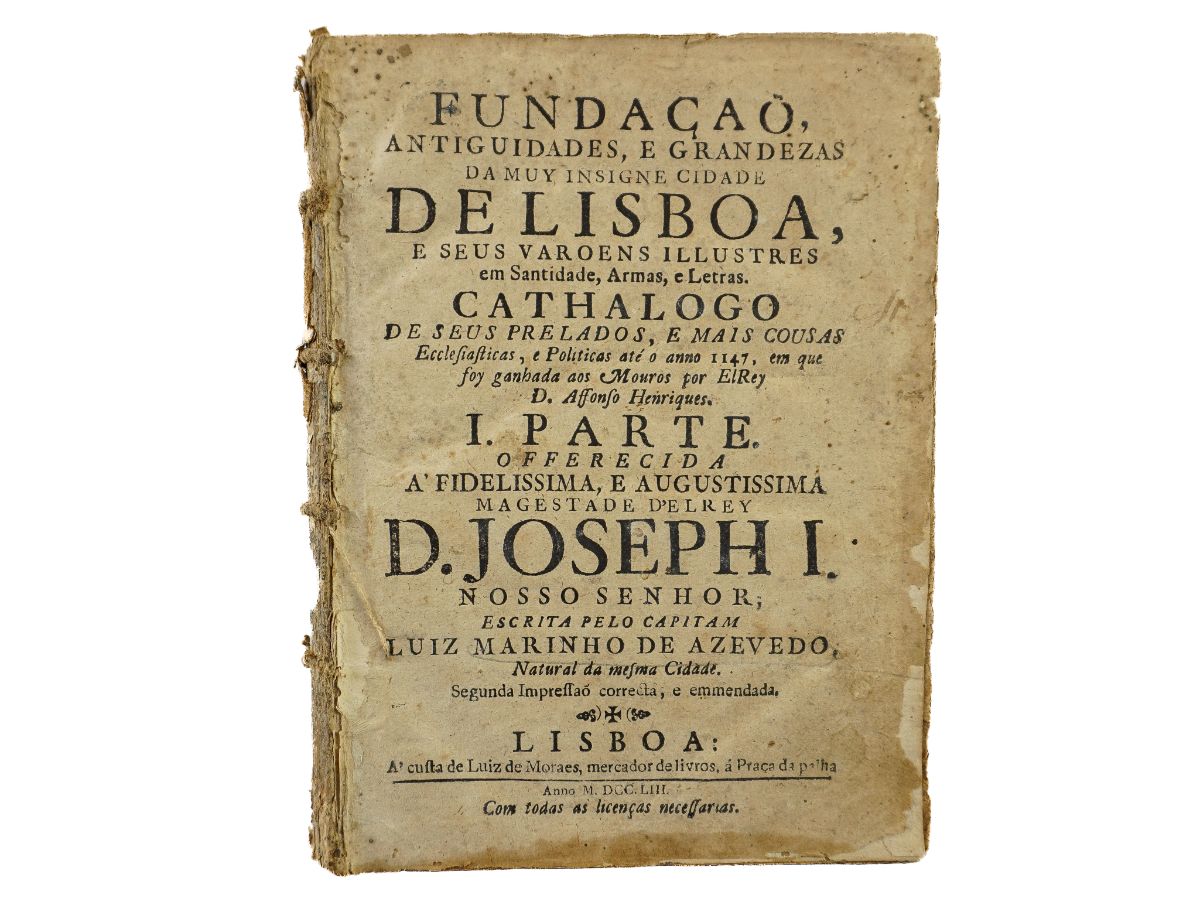 FUNDAÇAÕ,
ANTIGUIDADES, E GRANDEZAS
DA MUY INSIGNE CIDADE
DE LISBOA,
E SEUS VAROENS ILLUSTRES
em Santidade, Armas, e Letras.
CATHALOGO
DE SEUS PRELADOS, E MAIS COUSAS
Eccleſiaſticas, e Politicas até o anno 1147, em que
foy ganhada aos Mouros por ElRey
D. Affonſo Henriques.
I. PARTE.
OFFERECIDA
A' FIDELISSIMA, E AUGUSTISSIMA
MAGESTADE D'ELREY
D. JOSEPH I.
NOSSO SENHOR,
ESCRITA PELO CAPITAM
LUIZ MARINHO DE AZEVEDO,
Natural da meſma Cidade.
Segunda Impreſſaõ correcta, e emmendada.
LISBOA:
A' cuſta de Luiz de Moraes, mercador de livros, á Praça da palha
Anno M. DCC. LIII.
Com todas as licenças neceſſarias.